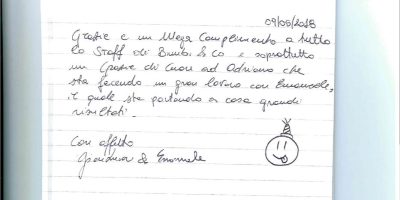 09/05/2018
Grazie e un Mega Complimento a tutto
lo Staff di Bimbi & Co e soprattutto
un Grazie di Cuore ad Adriano che
sta facendo un gran lavoro con Emanuele,
il quale sta portando a casa grandi
risultati.
Con affetto
di Emanuele